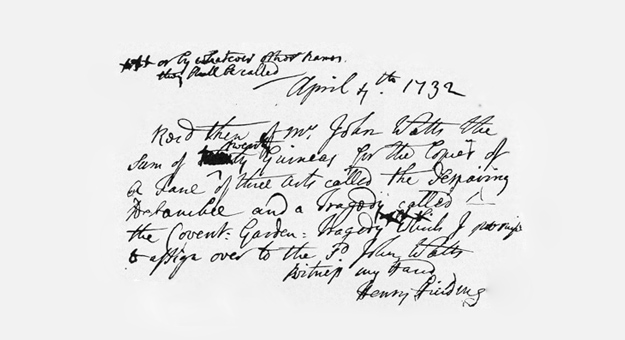 or by whatever other Names
they shall be called
April 4th. 1732
Recd then of Mr. John Watts the
Sum of twenty Guineas for the Copies of
a Farce of three Acts called the Despairing
Debauchee and a Tragedy called
the Covent: Garden: Tragedy which I promise
to assign over to the sd. John Watts
Witness my Hand
Henry Fielding